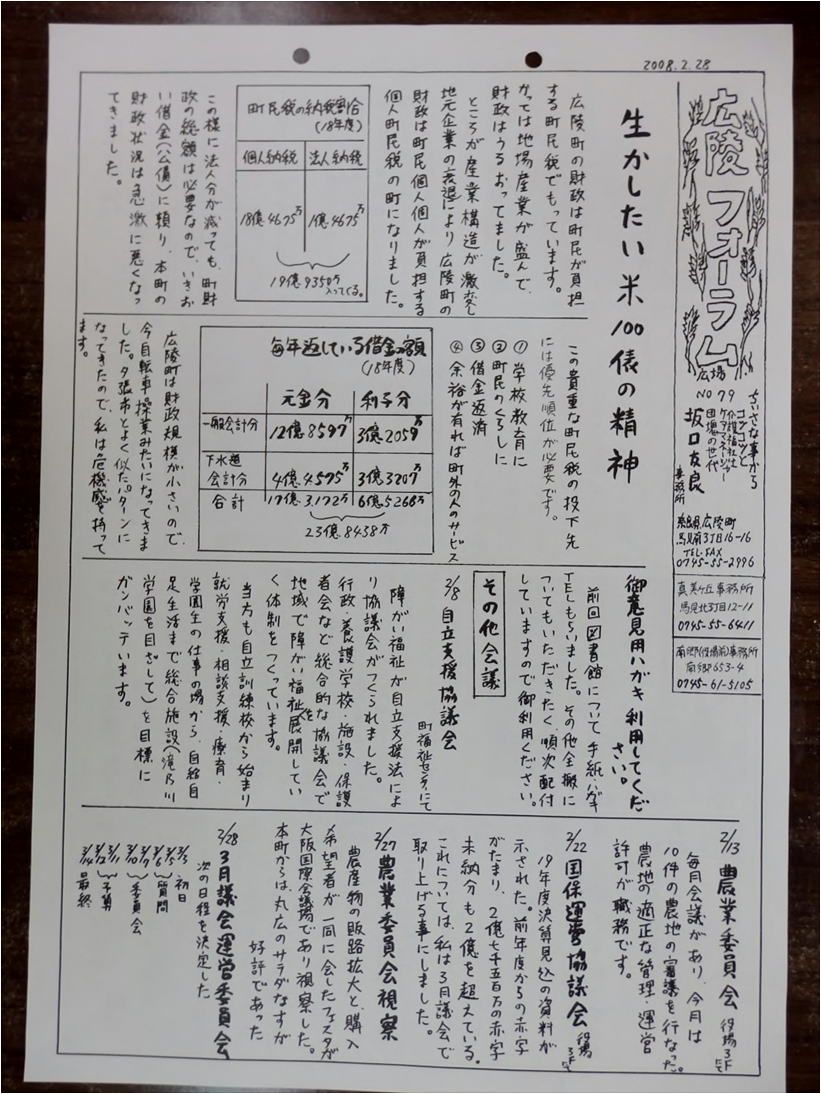 2008.2.28
広陵フォーラム
広場
NO 79
ちいさな事から
コツコツと
介護福祉士
ケアマネージャー
団塊の世代
坂口友良
事務所
奈良県広陵町
馬見南3丁目16-16
TEL・FAX
0745-55-2996
真美ヶ丘事務所
馬見北3丁目12-11
0745-55-6411
南郷(役場前)事務所
南郷653-4
0745-61-5105
生かしたい米100俵の精神
広陵町の財政は町民が負担
する町民税でもっています。
かっては地場産業が盛んで、
財政はうるおってました。
ところが産業構造が激変し
地元企業の衰退により広陵町の
財政は町民個人個人が負担する
個人町民税の町になりました。
町民税の納税割合
(18年度)
個人納税
法人納税
18億4675万
1億4675万
19億9350万
入ってくる。
この様に法人分が減っても、町財
政の総額は必要なので、いきお
い借金(公債)に頼り、本町の
財政状況は急激に悪くなっ
てきました。
この貴重な町民税の投下先
には優先順位が必要です。
① 学校教育に
② 町民のくらしに
③ 借金返済
④ 余裕が有れば町外の人のサービス
毎年返している借金の額
(18年度)
元金分 利子分
一般会計分 12億8597万 3億2059万
下水道
会計分 4億4575万 3億3207万
合計 17億3,172万 6億5268万
23億8438万
広陵町は財政規模が小さいので、
今自転車操業みたいになってきま
した。夕張市とよく似たパターンに
なってきたので、私は危機感を持って
ます。
御意見用ハガキ利用してくだ
さい。
前回図書館について手紙・ハガキ
TELもらいました。その他全搬に
ついてもいただきたく、順次配付
していますので御利用ください。
その他会議
2/8 自立支援協議会
町福祉センターにて
障がい福祉が自立支援法によ
り協議会がつくられました。
行政・養護学校・施設・保護
者会など総合的な協議会で
地域で障がい福祉を展開してい
く体制をつくっています。
当方も自立訓練校から始まり
就労支援・相談支援・療育・
学園生の仕事の場から、自給自
足生活まで総合施設(滝乃川
学園を目ざして)を目標に
ガンバッています。
2/13 農業委員会 役場3Fにて
毎月会議があり、今月は
10件の農地の審議を行なった。
農地の適正な管理・運営
許可が職務です。
2/22 国保運営協議会 役場3Fにて
19年度決算見込の資料が
示された。前年度からの赤字
がたまり、2億七千五百万の赤字
未納分も2億を超えている。
これについては、私は3月議会で
取り上げる事にしました。
2/27 農業委員会視察
農産物の販路拡大と、購入
希望者が一同に会したフェスタが
大阪国際会議場であり視察した。
本町からは、丸広のサラダなすが
好評であった
2/28 3月議会運営委員会
次の日程を決定した
3/3 初日
3/5
3/6 質問
3/7
3/10 委員会
3/11
3/12 予算
3/14 最終